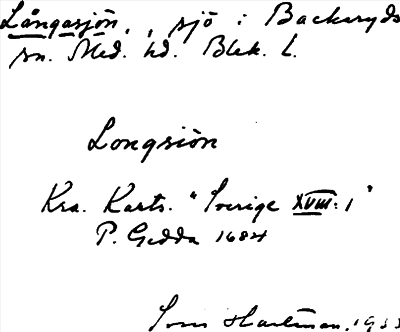 Långasjön, sjö i Backaryds
sn. Med. hd. Blek. l.
Longsiön
Kra. Karts. "Sverige XVIII:1"
P. Gedda 1684
Hartman, 1933